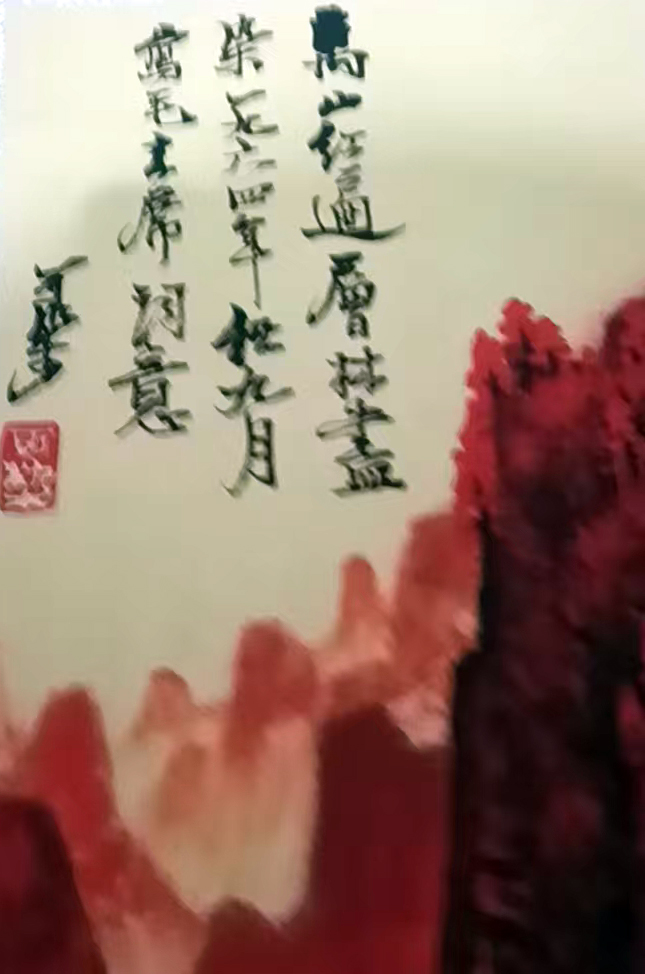 萬山紅遍層林盡
染一九六四年秋九月
寫毛主席詞意